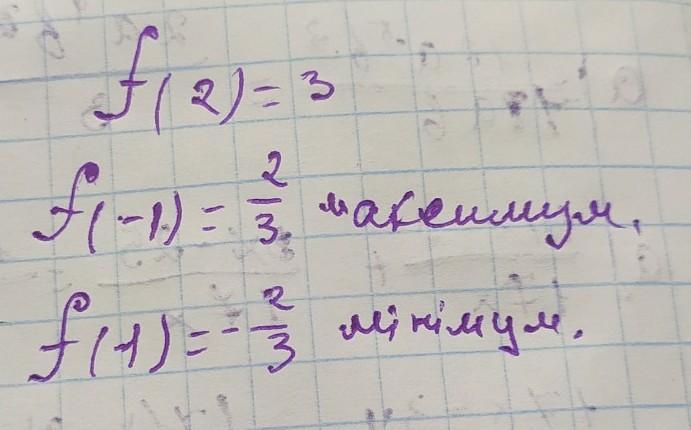 f(2) = 3
f(-1) = 2/3 максимум.
f(1) = -2/3 мінімум.